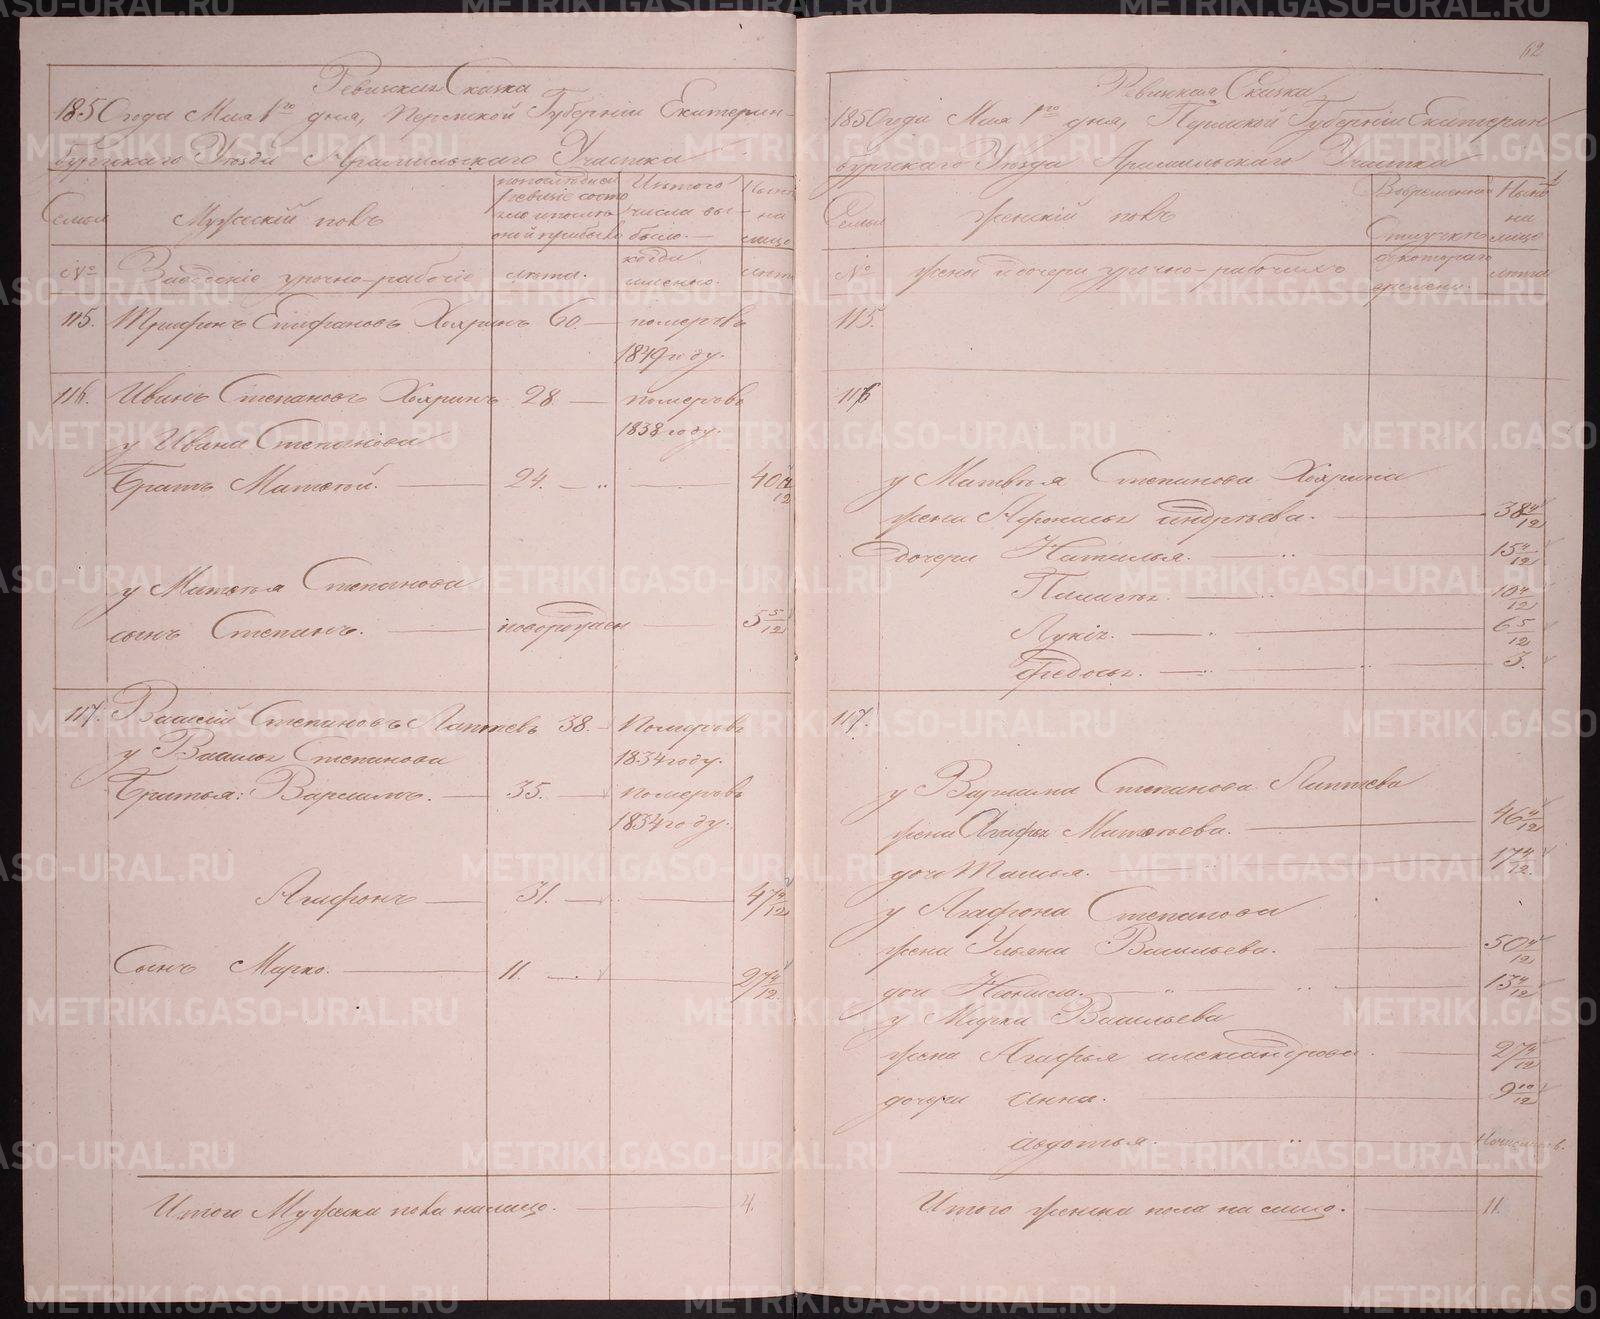 Ревизская Сказка
1850 года Мая 1го дня, Пермской Губернiи Екатерин-
бургскаго Уѣзда Арамильскаго Участка
Семьи
Мужескiй полъ
по последней
ревизiи состо
было.
Изъ того
числа вы-
было.
Ныне
на
лицо
№
Заводскiе урочно-рабочiе
лѣта.
когда
именно.
лѣта
115. Трифонъ Епифановъ Хохринъ 60. — померъ въ
1849 году.
116. Иванъ Степановъ Хохринъ 28. — померъ въ
1838 году.
у Ивана Степанова
братъ Матвѣй. — 24. — 40 4/12
у Матвѣя Степанова
сынъ Степанъ. — новорожден — 5 5/12
117. Василiй Степановъ Лаптевъ 38. — Померъ въ
1834 году.
у Василья Степанова
братья: Варламъ. — 35. — померъ въ
1834 году.
Агафонъ — 31. — 47 4/12
Сынъ Марко. — 11. — 27 4/12
Итого Мужеска пола налицо. — 4.
62
Ревизская Сказка
1850 года Мая 1го дня, Пермской Губернiи Екатерин
бургскаго Уѣзда Арамильскаго Участка
Семьи
Женскiй полъ
Во временной
Отлучкѣ
Ныне
на
лицо
№
жены и дочери урочно-рабочихъ
съ котораго
времени.
лѣта
115.
116
у Матвѣя Степанова Хохрина
жена Афонасья Андрѣева. — 38 4/12
дочери Наталья. — 15 4/12
Палагья. — 10 4/12
Лукiя. — 6 5/12
Федосья. — 3.
117.
у Варлама Степанова Лаптева
жена Агафья Матвѣева. — 46 4/12
дочь Татьяна. — 17 4/12
у Агафона Степанова
жена Ульяна Васильева. — 50 4/12
дочь — 13 4/12
у Марка Васильева
жена Агафья Александрова. — 27 4/12
дочери Анна. — 9 10/12
Авдотья.
Итого женска пола на лицо. — 11.
METRIKI.GASO-URAL.RU